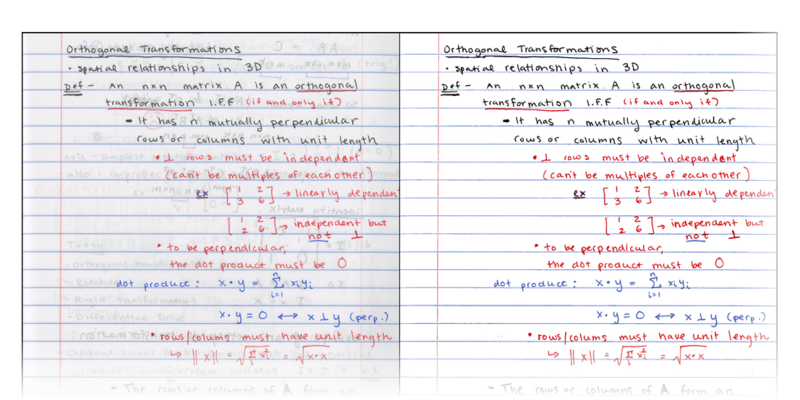 Orthogonal Transformations
• spatial relationships in 3D
Def - An nxn matrix A is an orthogonal
transformation I.F.F (if and only if)
- It has n mutually perpendicular
rows or columns with unit length
• ⊥ rows must be independent
(can't be multiples of each other)
ex [1 2
3 6] → linearly dependen
[1 2
2 6] → independent but
not ⊥
• to be perpendicular,
the dot product must be 0
dot product: x • y = n∑i=1 xiyi
x • y = 0 ↔ x ⊥ y (perp.)
• rows/colums must have unit length
↳ ||x|| = √∑xi² = √x•x
- The rows or columns of A form an
Orthogonal Transformations
• spatial relationships in 3D
Def - An nxn matrix A is an orthogonal
transformation I.F.F (if and only if)
- It has n mutually perpendicular
rows or columns with unit length
• ⊥ rows must be independent
(can't be multiples of each other)
ex [1 2
3 6] → linearly dependen
[1 2
2 6] → independent but
not ⊥
• to be perpendicular,
the dot product must be 0
dot product: x • y = n∑i=1 xiyi
x • y = 0 ↔ x ⊥ y (perp.)
• rows/colums must have unit length
↳ ||x|| = √∑xi² = √x•x
- The rows or columns of A form an